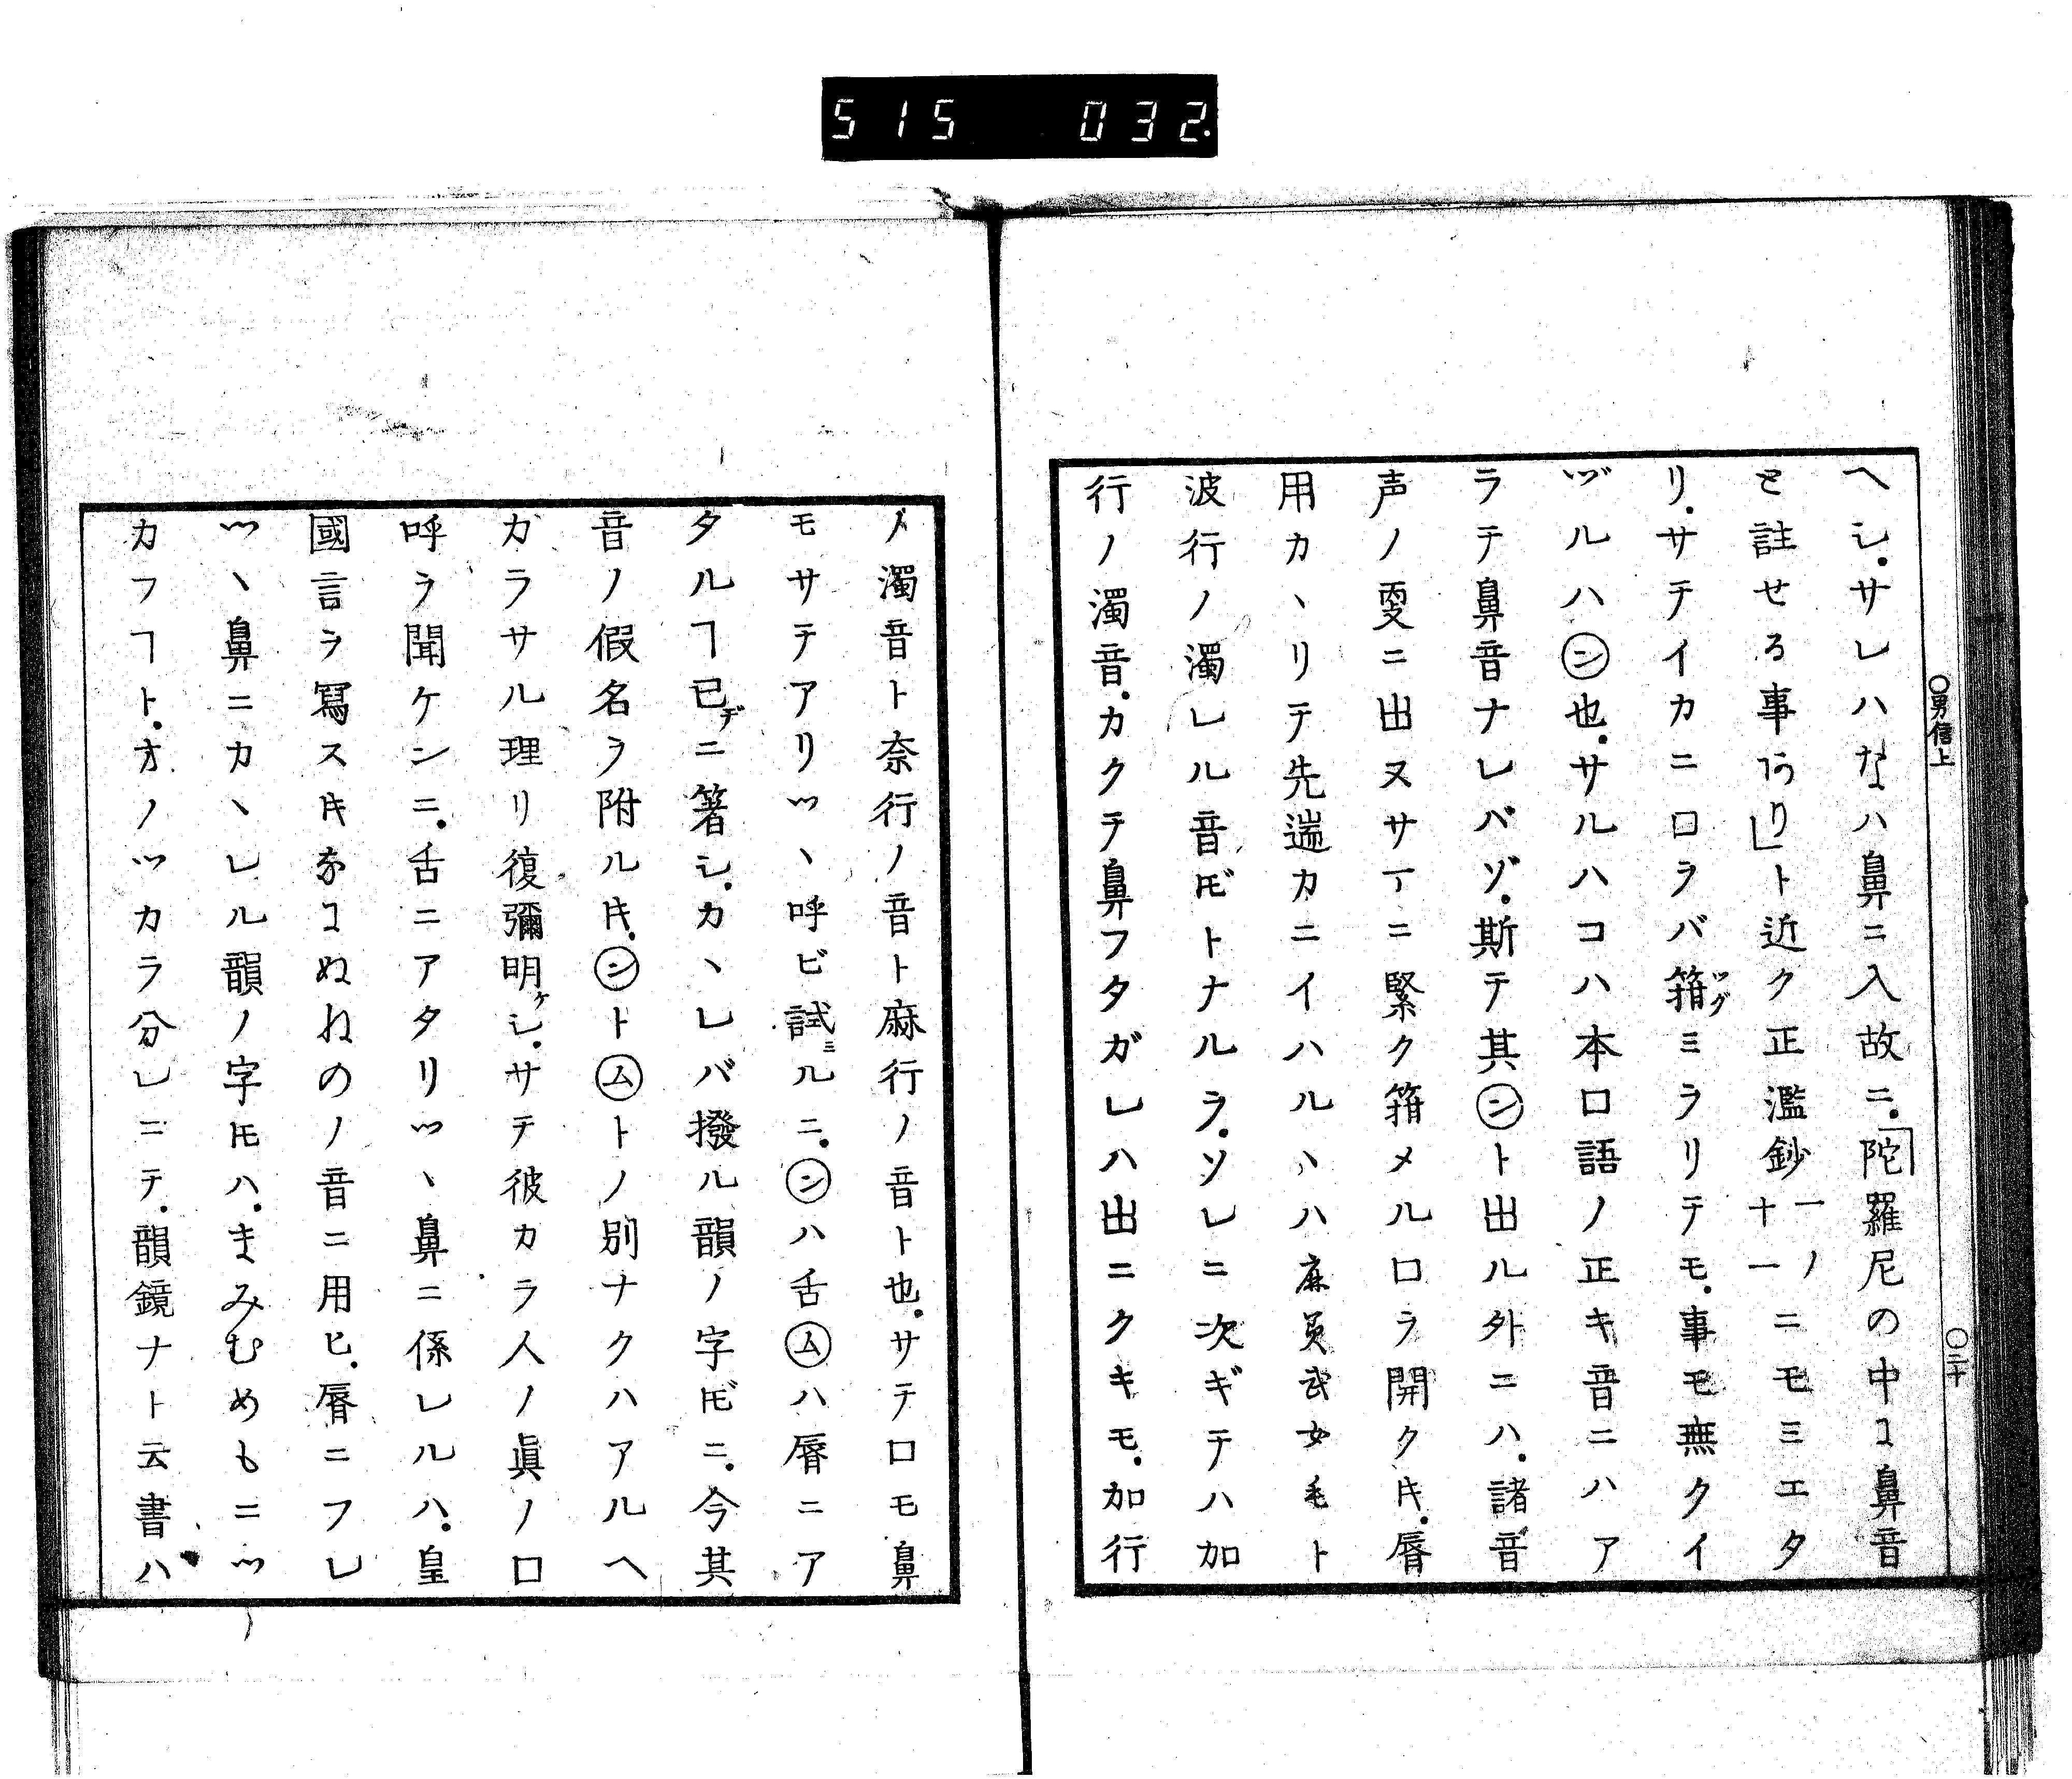 515 032.
〇男信上
〇二十
ヘシ.サレハなハ鼻ニ入故ニ.「陀羅尼の中に鼻音
と註せる事あり」ト近ク正濫鈔一ノ十一ニモミエタ
リ.サテイカニ口ヲバ箝ツグミヲリテモ.事モ無クイ
ヅルハ㋟ン也.サルハコハ本口語ノ正キ音ニハア
ラテ鼻音ナレバゾ.斯テ其ント出ル外ニハ.諸音
声ノ変ニ出ヌサマニ緊ク箝メル口ヲ開クトキ.脣
用カヽリテ先遄カニイハルヽハ麻美武女毛ト
波行ノ濁レル音ドモトナルヲ.ソレニ次ギテハ加
行ノ濁音.カクテ鼻フタガレハ出ニクキモ.加行
ノ濁音ト奈行ノ音ト麻行ノ音ト也.サテ口モ鼻
モサテアリツヽ呼ビ試ミルニ.ンハ舌ムハ脣ニア
タルヿ已デニ著シ.カヽレバ撥ル韻ノ字ドモニ.今其
音ノ假名ヲ附ルトキ.ントムトノ別ナクハアルヘ
ガラサル理リ復彌明ケシ.サテ彼カラ人ノ眞ノ口
呼ヲ聞ケンニ.舌ニアタリツヽ鼻ニ係レルハ.皇
國言ヲ寫ストキなにぬねのノ音ニ用ヒ.脣ニフレ
ツヽ鼻ニカヽレル韻ノ字トモハ.まみむめもニツ
カフヿト.オノツカラ分レニテ.韻鏡ナト云書ハ